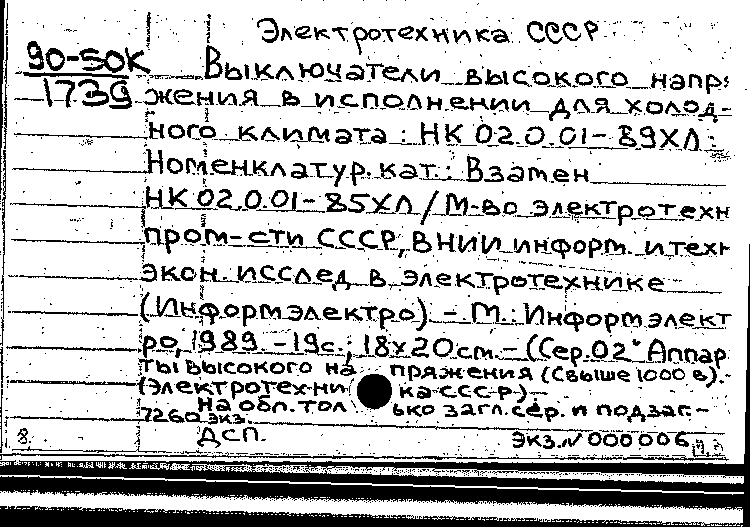 Электротехника СССР
90-50К Выключатели высокого напря
1739 жения в исполнении для холод-
ного климата : НК 02.0.01-89ХЛ :
Номенклатур. кат. : Взамен
НК 02.0.01-85ХЛ / М-во электротехн
пром-сти СССР, ВНИИ информ. и техн
экон. исслед в электротехнике
(Информэлектро) - М.: Информэлект
ро, 1989 - 19с.; 18х20см. - (Сер. 02 Аппар
ты высокого напряжения (Свыше 1000 в). -
(Электротехника СССР) -
На обл. только загл. сер. и подзаг. -
7260 экз.
8. ДСП. Экз. N 000006